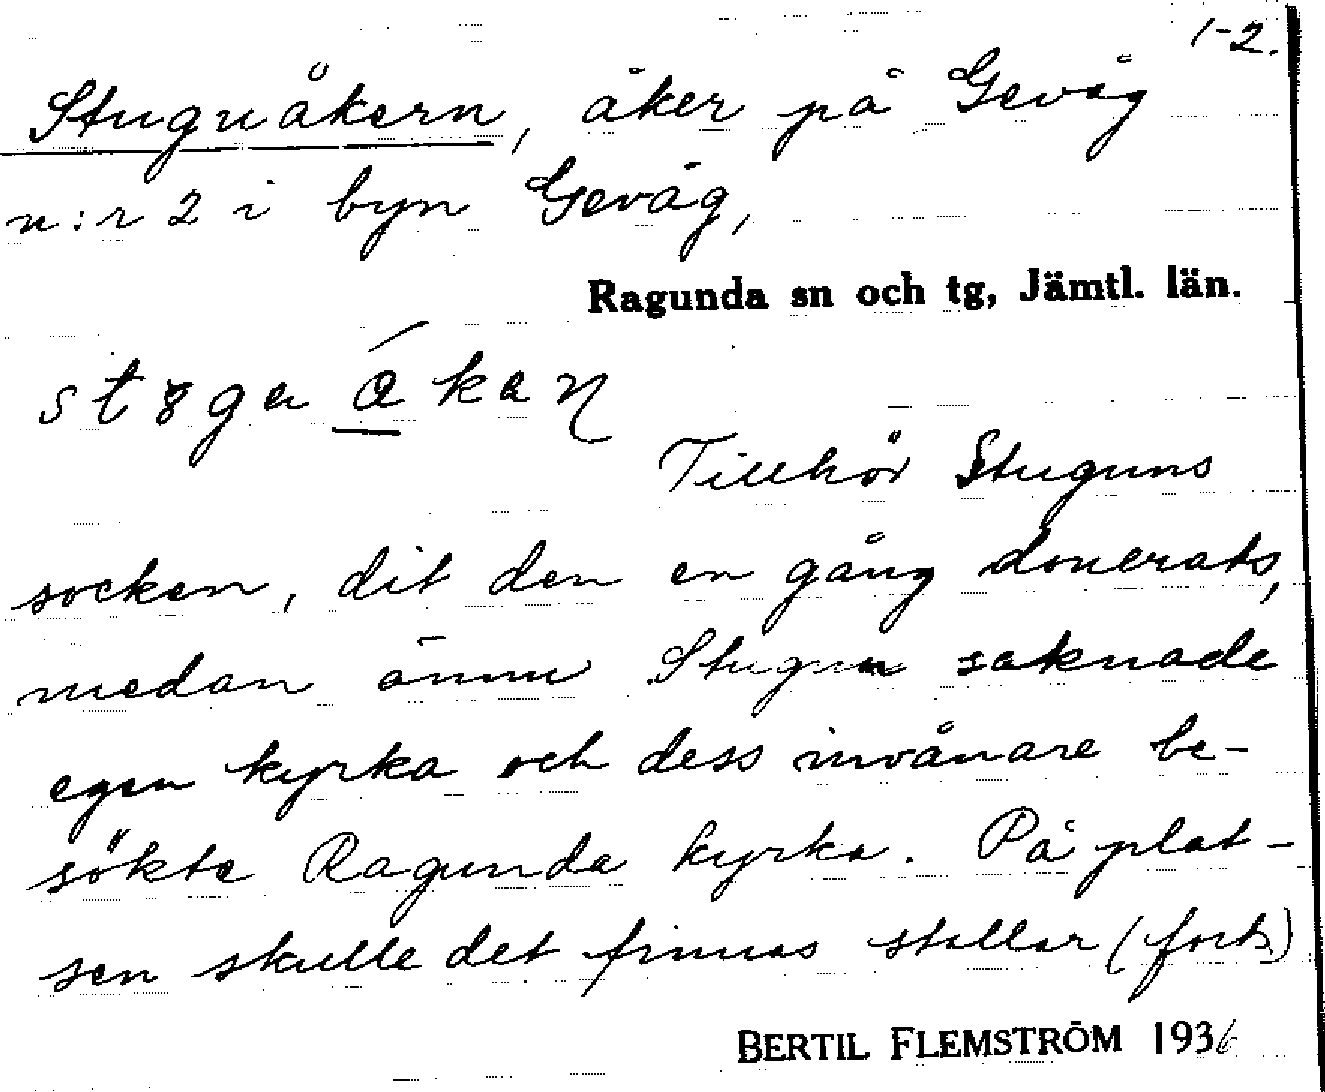 1-2.
Stuguåkern, åker på Gevåg
n:r 2 i byn Gevåg,
Ragunda sn och tg, Jämtl. län.
Tillhör Stuguns
socken, dit den en gång donerats,
medan ännu Stugun saknade
egen kyrka och dess invånare be-
sökte Ragunda kyrka. På plat-
sen skulle det finnas stallar (forts.)
BERTIL FLEMSTRÖM 1936